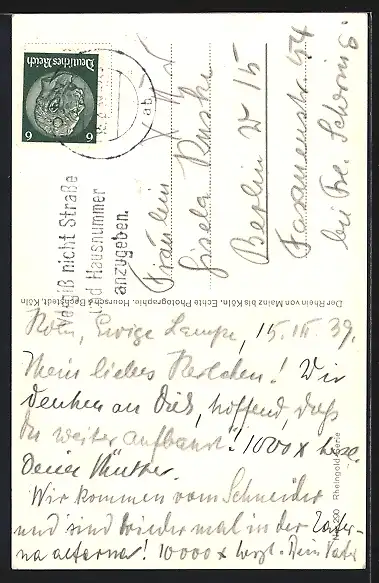 Deutsches Reich
6 6
Vergiß nicht Straße
und Hausnummer
anzugeben.
Fräulein
Gisela
Berlin W 15
Fasanenstr. 54
bei Fr.
Der Rhein von Mainz bis Köln, Echte Photographie, Hoursche & Bechstedt, Köln
Köln, Ewige Lampe, 15. III. 39.
Mein liebes Kerlchen! Wir
denken an Dich, hoffend, daß
Du weiter aufbaust! 1000 x herzl.
Deine Mutter.
Wir kommen vom Schneider
und sind wieder mal in der
na aeterna! 10000 x herzl. Dein Vater
Rheingold-Serie